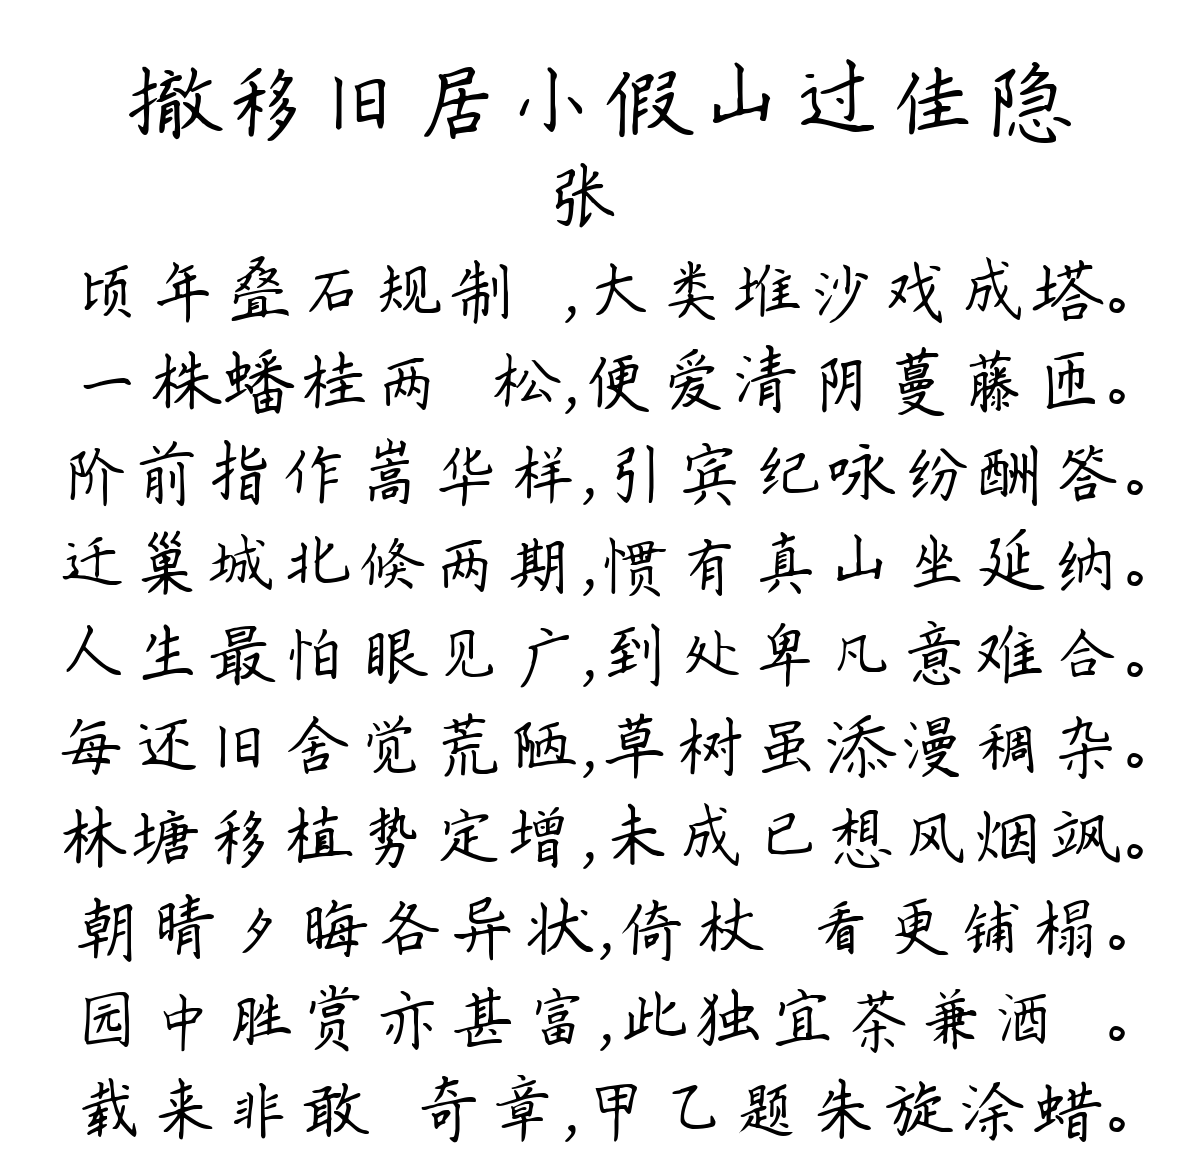 撤移旧居小假山过佳隐
张
顷年叠石规制 ,大类堆沙戏成塔。
一株蟠桂两 松,便爱清阴蔓藤匝。
阶前指作嵩华样,引宾纪咏纷酬答。
迁巢城北倏两期,惯有真山坐延纳。
人生最怕眼见广,到处卑凡意难合。
每还旧舍觉荒陋,草树虽添漫稠杂。
林塘移植势定增,未成已想风烟飒。
朝晴夕晦各异状,倚杖 看更铺榻。
园中胜赏亦甚富,此独宜茶兼酒 。
载来非敢 奇章,甲乙题朱旋涂蜡。